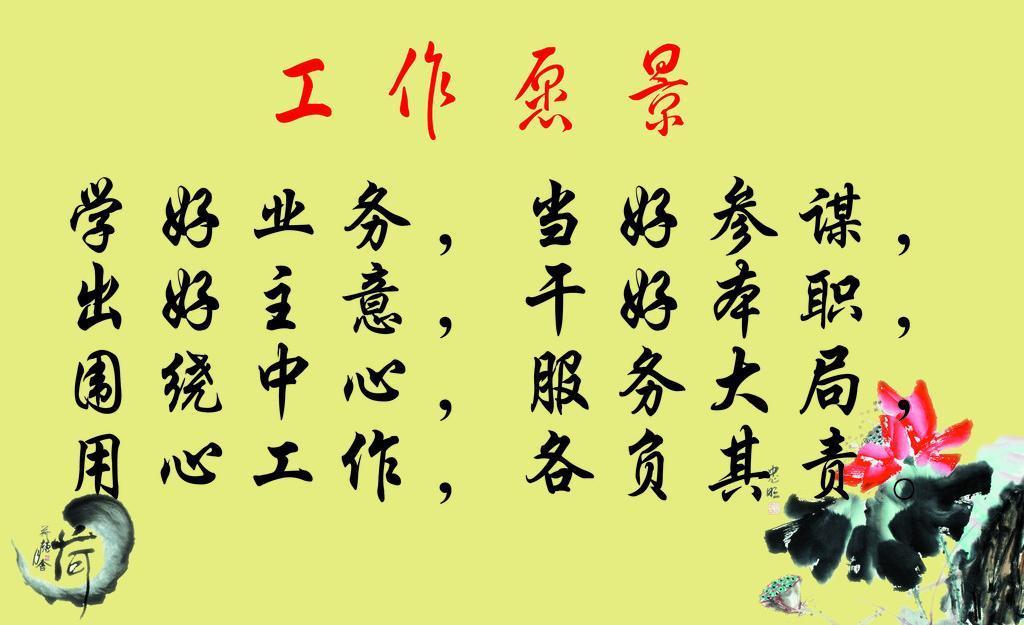 工作愿景
学好业务，当好参谋，
出好主意，干好本职，
围绕中心，服务大局，
用心工作，各负其责。
荷